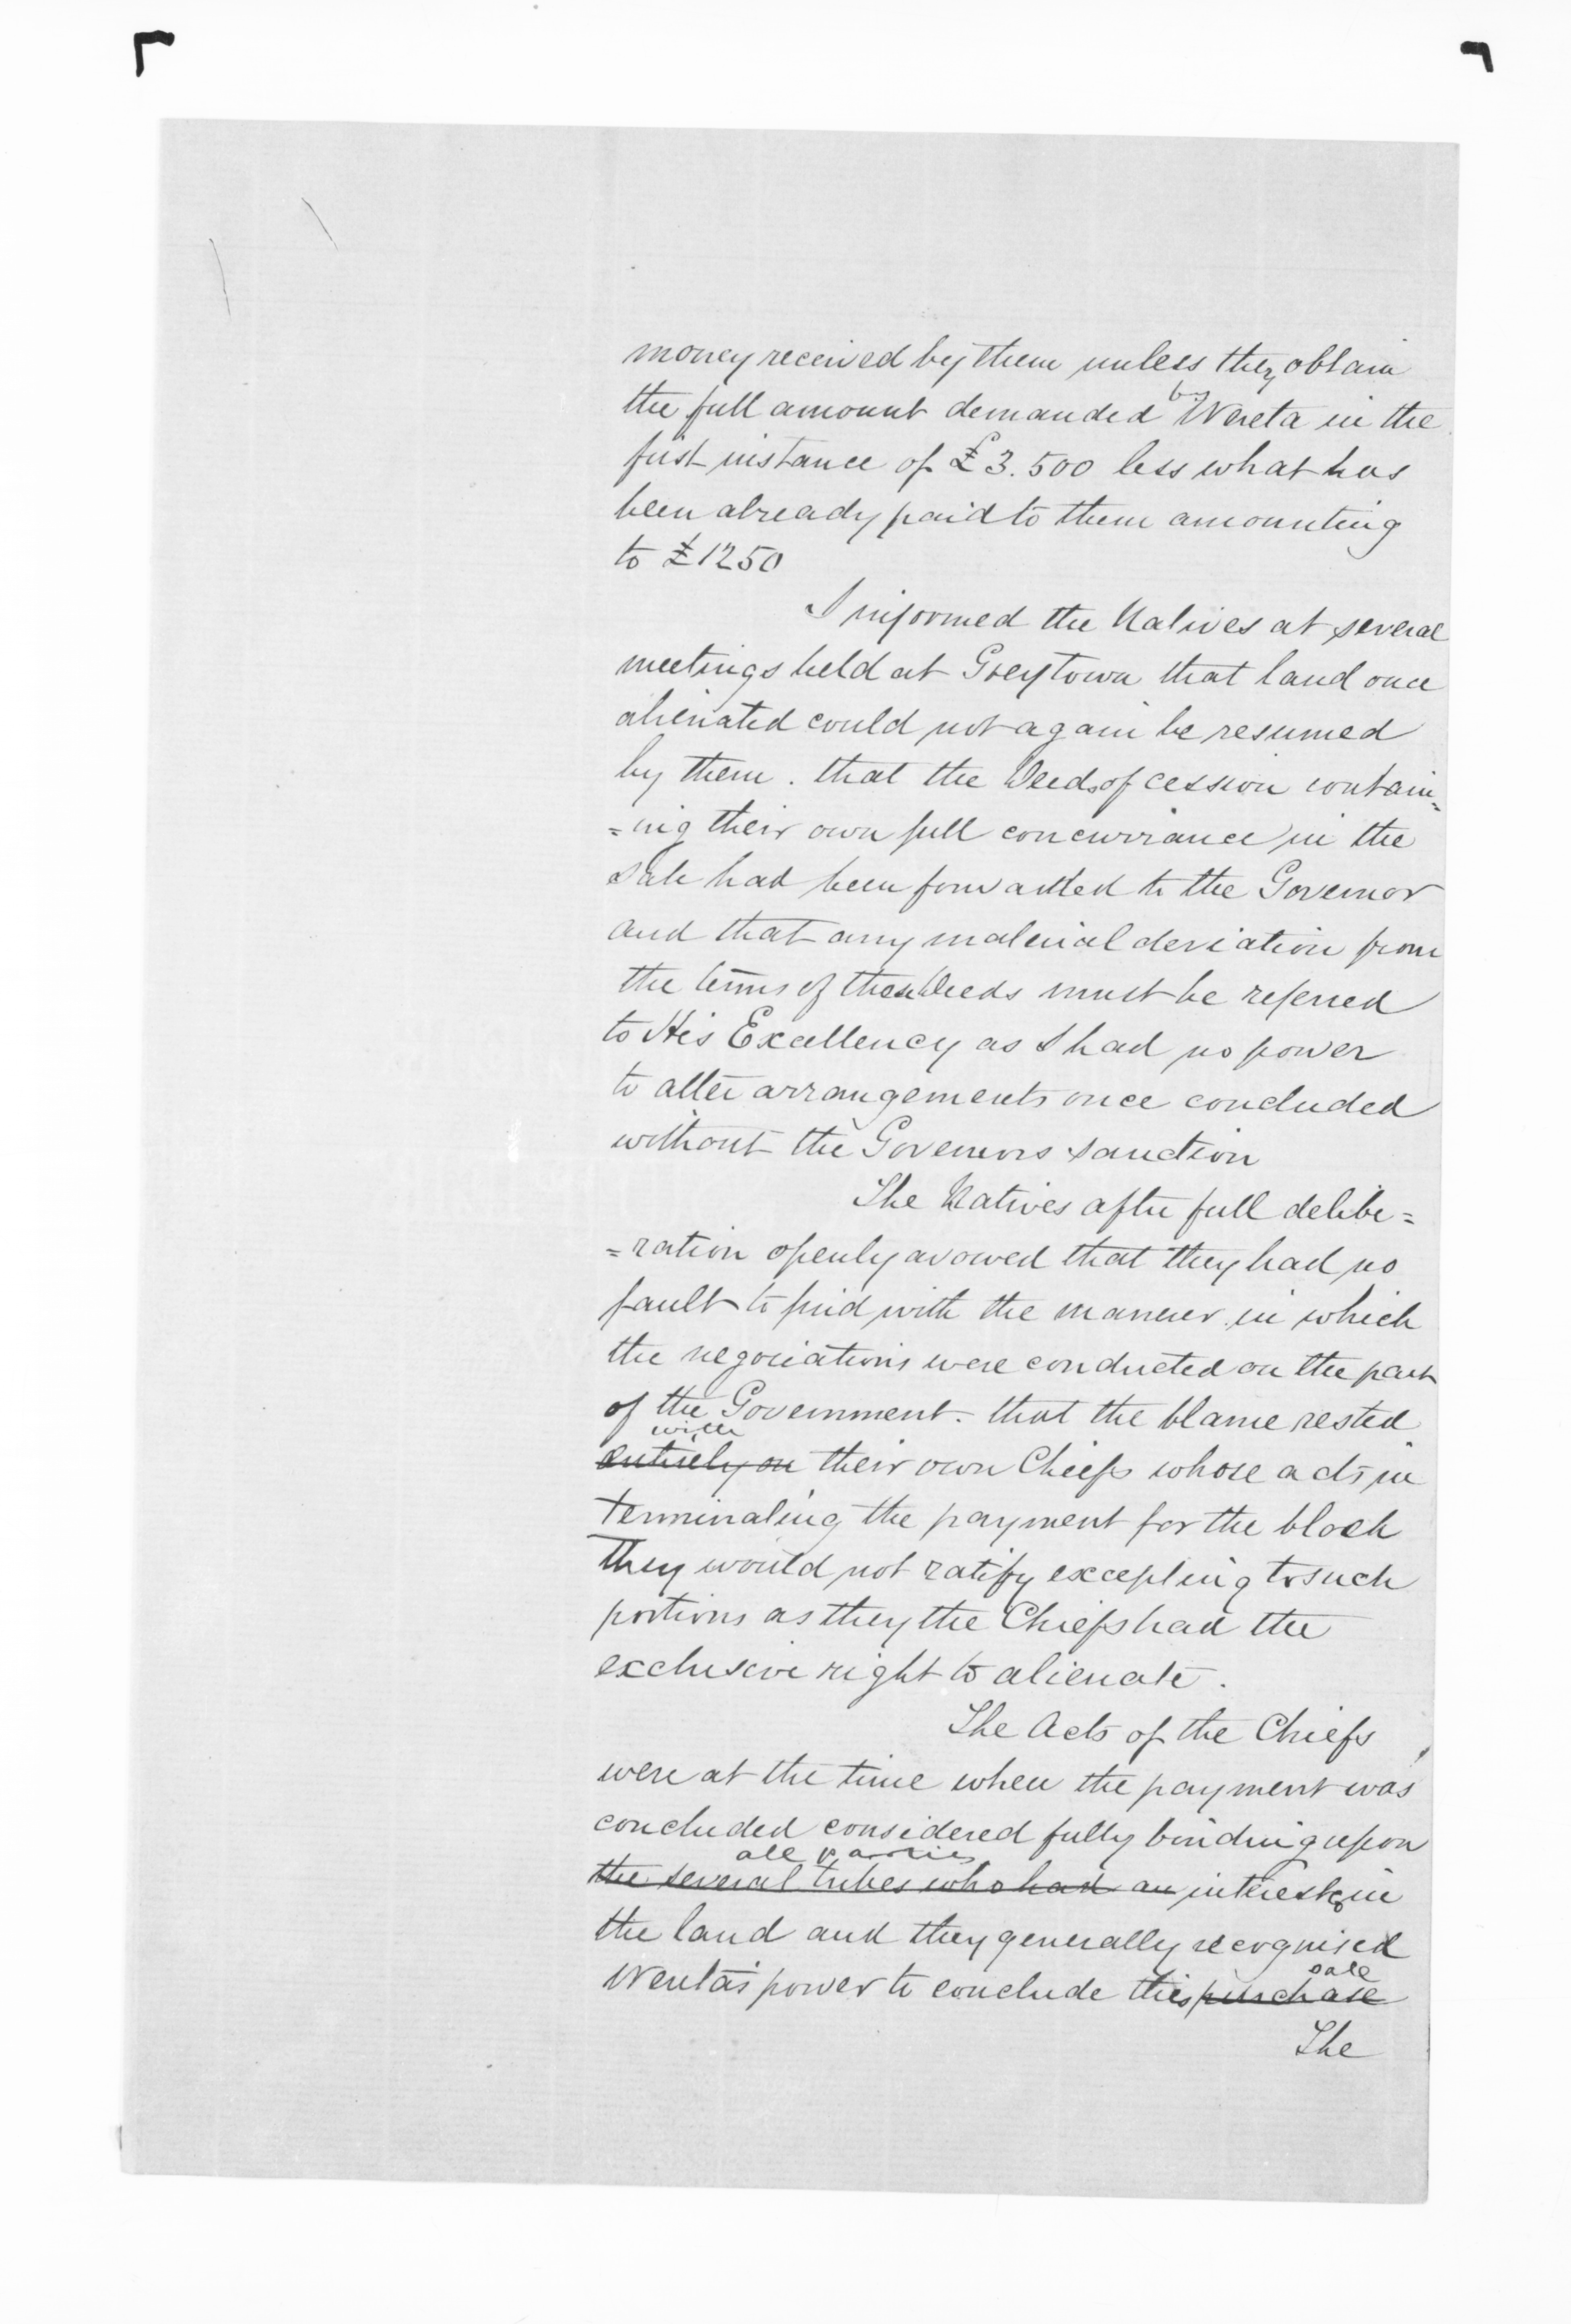 money received by them unless they obtain
the full amount demanded by Wereta in the
first instance of £3.500 less what has
been already paid to them amounting
to £1250
I informed the Natives at several
meetings held at Greytown that land once
alienated could not again be resumed
by them. that the Deeds of cession contain=
=ing their own full concurrance in the
Sale had been forwarded to the Governor
and that any material deviation from
the terms of these Deeds must be referred
to His Excellency as I had no power
to alter arrangements once concluded
without the Governors sanction
The Natives after full delibe=
=ration openly avowed that they had no
fault to find with the manner in which
the negociations were conducted on the part
of the Government. that the blame rested
with
entirely on their own Chiefs whose acts in
terminating the payment for the block
They would not ratify excepting to such
portions as they the Chiefs had the
exclusive right to alienate.
The Acts of the Chiefs
were at the time when the payment was
concluded considered fully binding upon
all parties
the several tribes who had an interest in
the land and they generally recognised
Wereta's power to conclude this purchase
sale
The